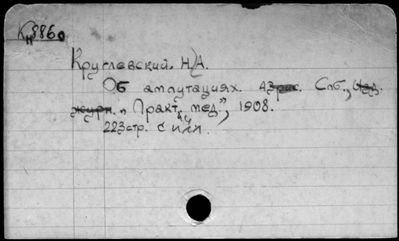 Круглевский. Н.А.
Об ампутациях. Спб., Изд.
журн. „Практ. мед.”, 1908.
223 стр. с илл.